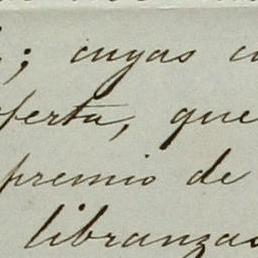 ; cuyas c
oferta, que
premio de
libranzas